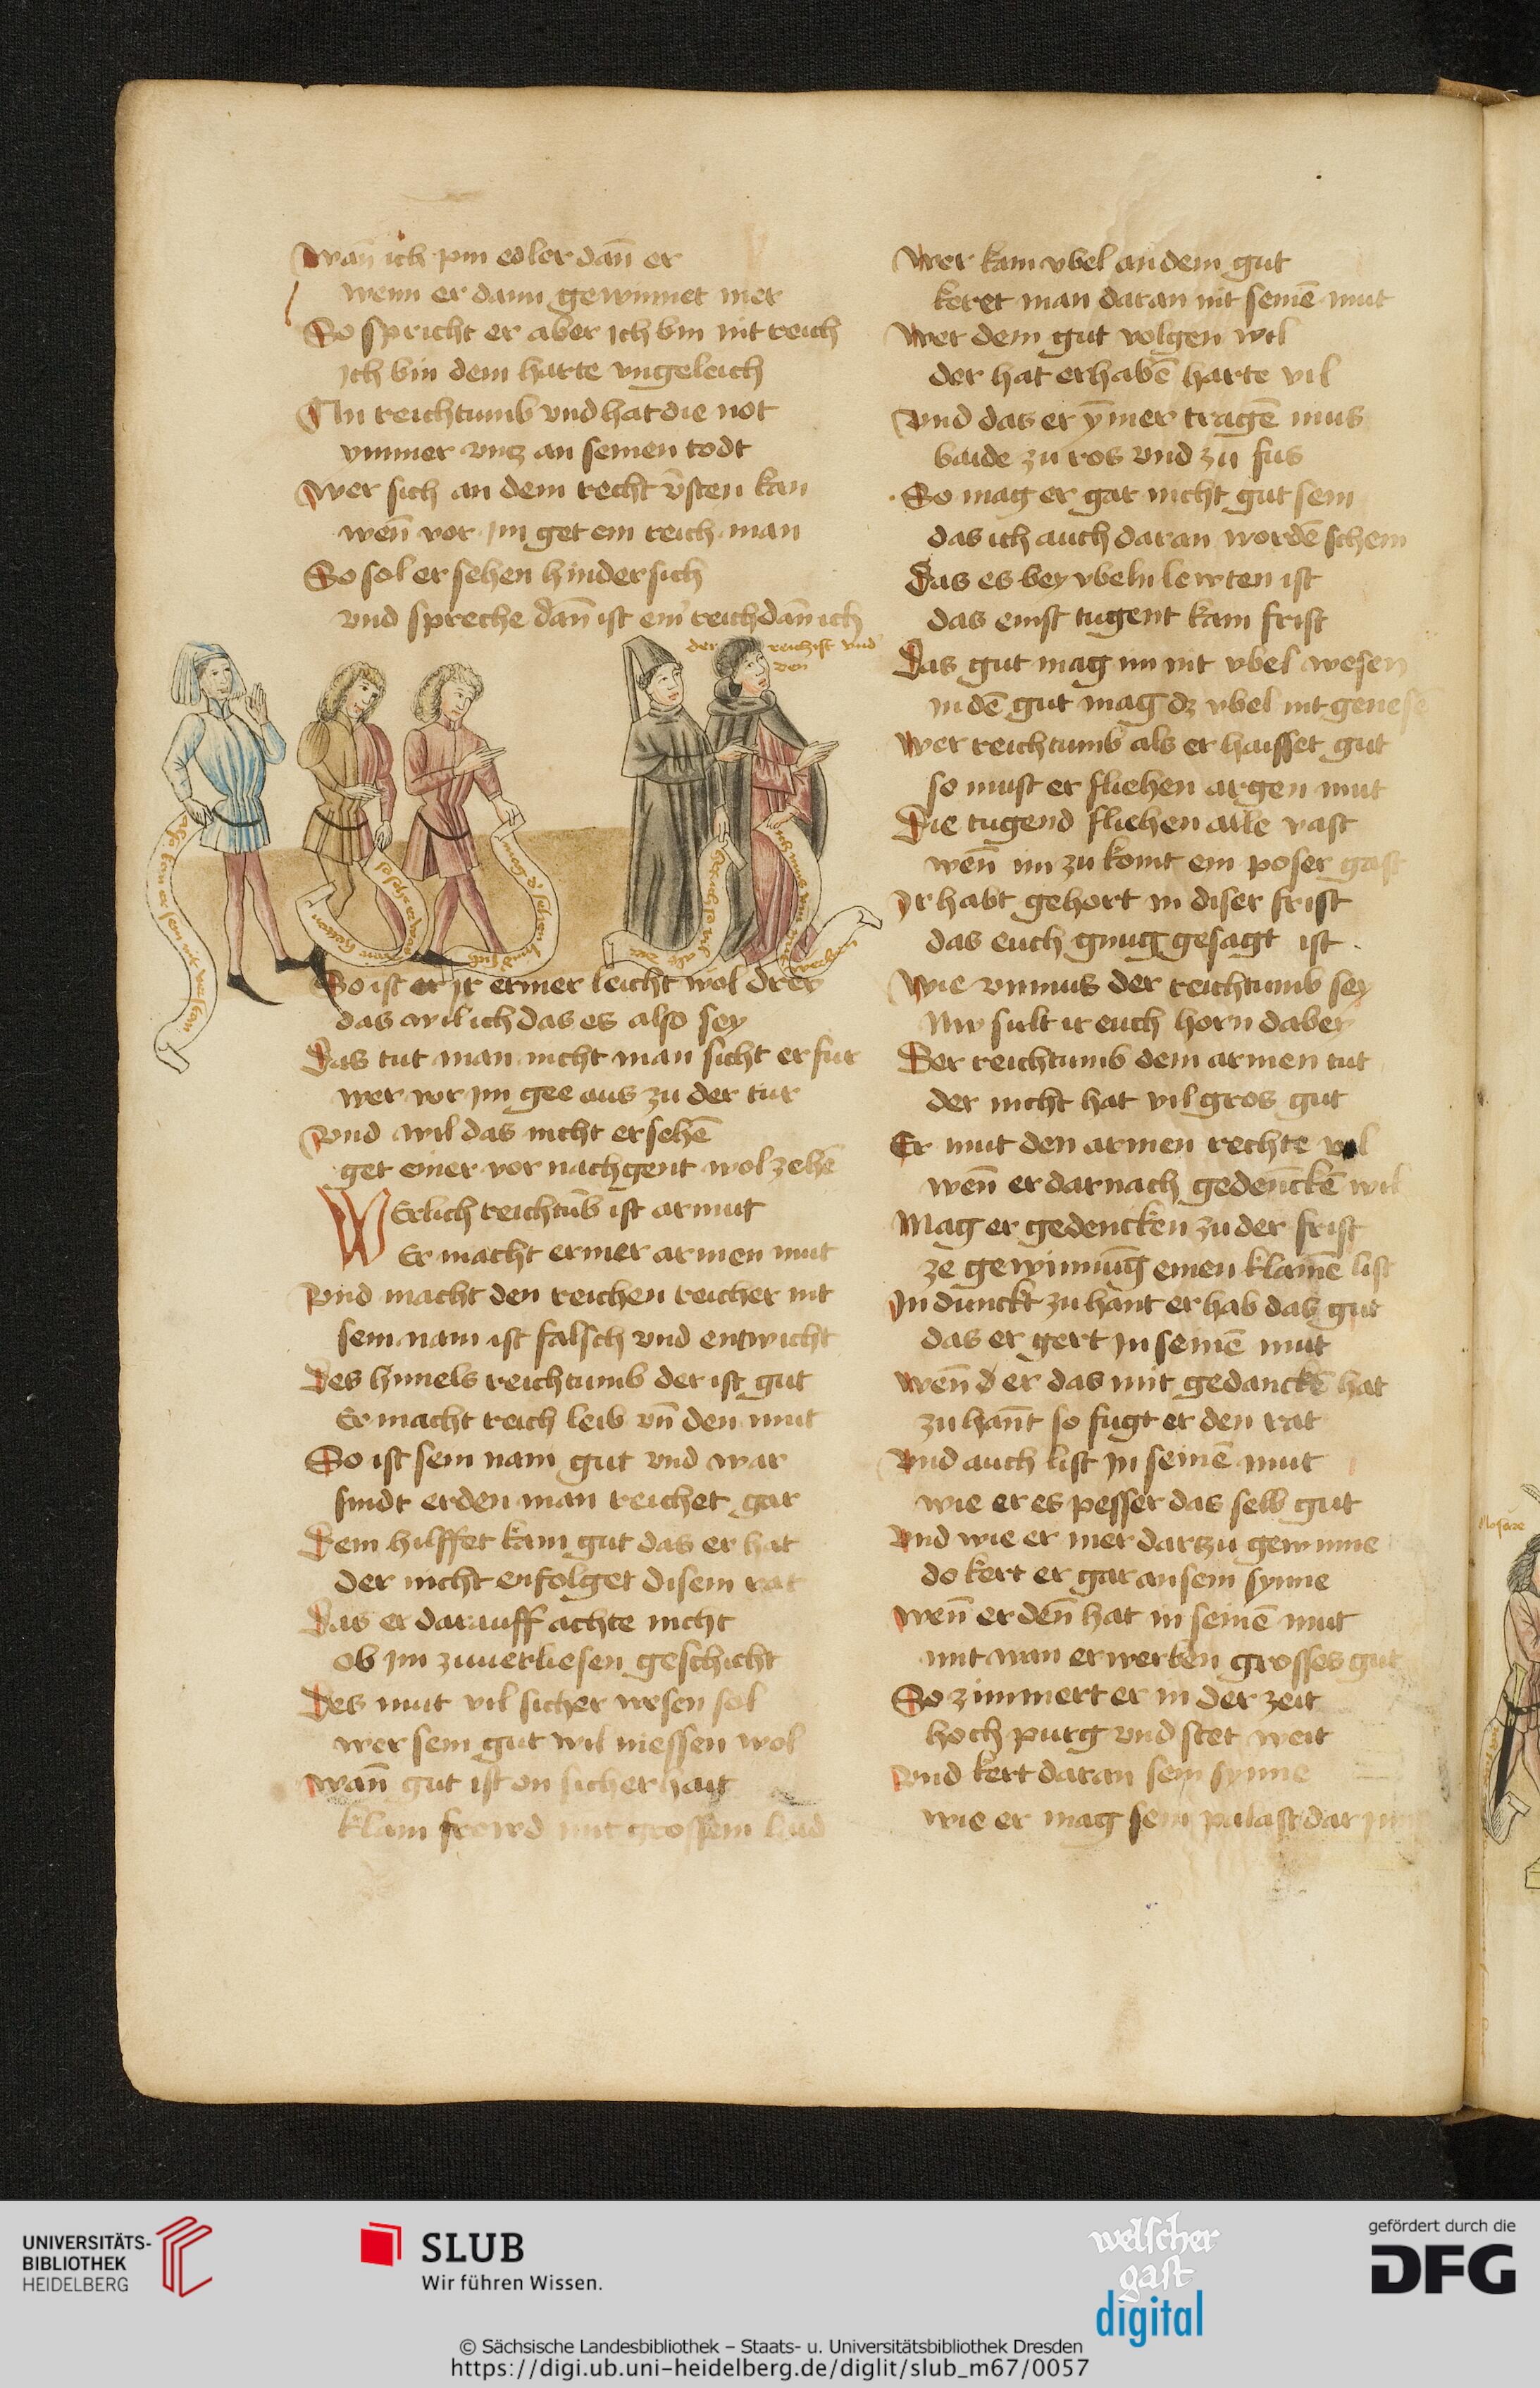 Wan̄ ich pin edler dan̄ er
wenn er dann gewinnet mer
So spricht er aber ich bin nit reich
Ich bin dem harte vngeleich
An reichtumb vnd hat die not
ymmer vntz an seinen todt
Wer sich an dem recht v̄sten kan
wen̄ vor im get ein reich man
So sol er sehen hinder sich
vnd spreche dan̄ ist ein reich dan̄ ich
der reich ist vnd
den
So ist er ir ermer leicht wol drey
das wil ich das es also sey
Das tut man nicht man sicht er fur
wer vor im gee aus zu der tur
Vnd wil das nicht ersehē
get einer vor nachgent wol zehē
WErlich reichtūb ist armut
Er macht ermer armen mut
Vnd macht den reichen reicher nit
sein nam ist falsch vnd entwicht
Des himels reichtumb der ist gut
Er macht reich leib vn̄ den mut
So ist sein nam gut vnd war
sindt er den man reichet gar
Dem hilffet kain gut das er hat
der nicht enfolget disem rat
Das er darauff achte nicht
ob im zuuerliesen geschicht
Des mut vil sicher wesen sol
wer sein gut wil niessen wol
Wan̄ gut ist on sicherhait
klain frewd mit grossem laid
Wer kain vbel an dem gut
keret man daran nit seinē mut
Wer dem gut volgen wil
der hat erhabē harte vil
Vnd das er ȳmer tragē mus
baide zu ros vnd zu fus
So mag er gar nicht gut sein
das ich auch daran wordē schein
Das es bey vbeln lewten ist
das einst tugent kain frist
Das gut mag im nit vbel wesen
in dē gut mag dz vbel nit genese
Wer reichtumb als er haisset gut
so must er fliehen argen mut
Die tugend fliehen alle vast
wen̄ im zu komt ein poser gast
Ir habt gehort in diser frist
das euch gnug gesagt ist
Wie vnnus der reichtumb sey
Nw sult ir euch horn dabey
Der reichtumb dem armen tut
der nicht hat vil gros gut
Er mut den armen rechte vil
wen̄ er darnach gedēnckē wil
Mag er gedencken zu der frist
ze gewinnūg einen klainē list
In dunckt zu hant er hab das gut
das er gert in seinē mut
Wen̄ d er das mit gedanckē hat
zu han̄t so fugt er den rat
Vnd auch list in seinē mut
wie er es pesser das selb gut
Vnd wie er mer dartzu gewinne
do kert er gar an sein synne
Wen̄ er den̄ hat in seinē mut
mit wan erwerben grosses gut
So zimmert er in der zeit
hoch purg vnd stet weit
Vnd kert daran sein synne
wie er mag sein palast dar inn
UNIVERSITÄTS-
BIBLIOTHEK
HEIDELBERG
SLUB
Wir führen Wissen.
welscher
gast
digital
gefördert durch die
DFG
© Sächsische Landesbibliothek – Staats- u. Universitätsbibliothek Dresden
https://digi.ub.uni-heidelberg.de/diglit/slub_m67/0057